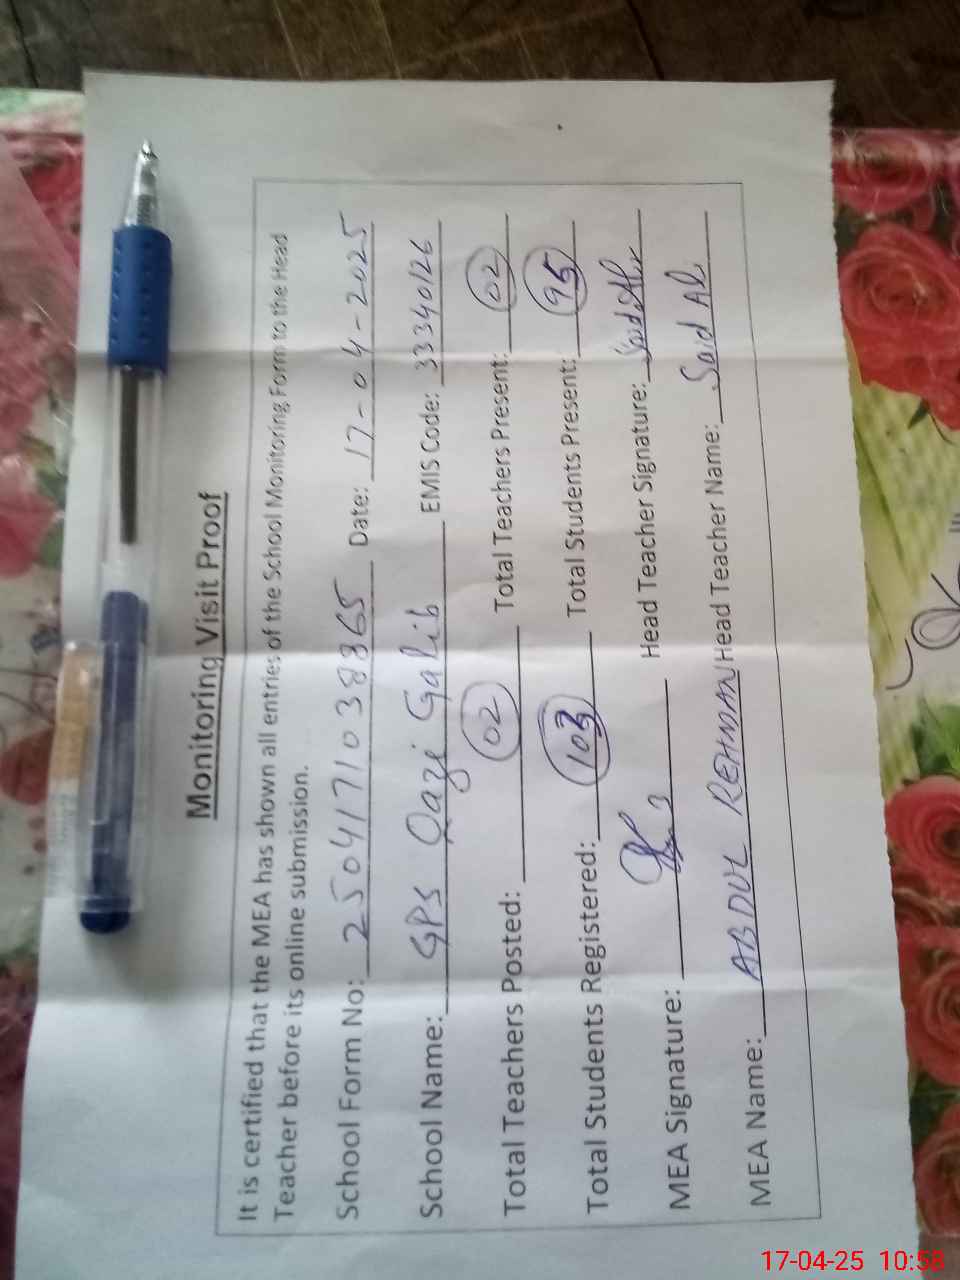 Monitoring Visit Proof
It is certified that the MEA has shown all entries of the School Monitoring Form to the Head
Teacher before its online submission.
School Form No: 2504171038865 Date: 17-04-2025
School Name: GPS Qazi Galib EMIS Code: 33340126
Total Teachers Posted: 02 Total Teachers Present: 02
Total Students Registered: 103 Total Students Present: 95
MEA Signature: Head Teacher Signature:
MEA Name: ABDUL REHMAN Head Teacher Name: Said Ali
17-04-25 10:58